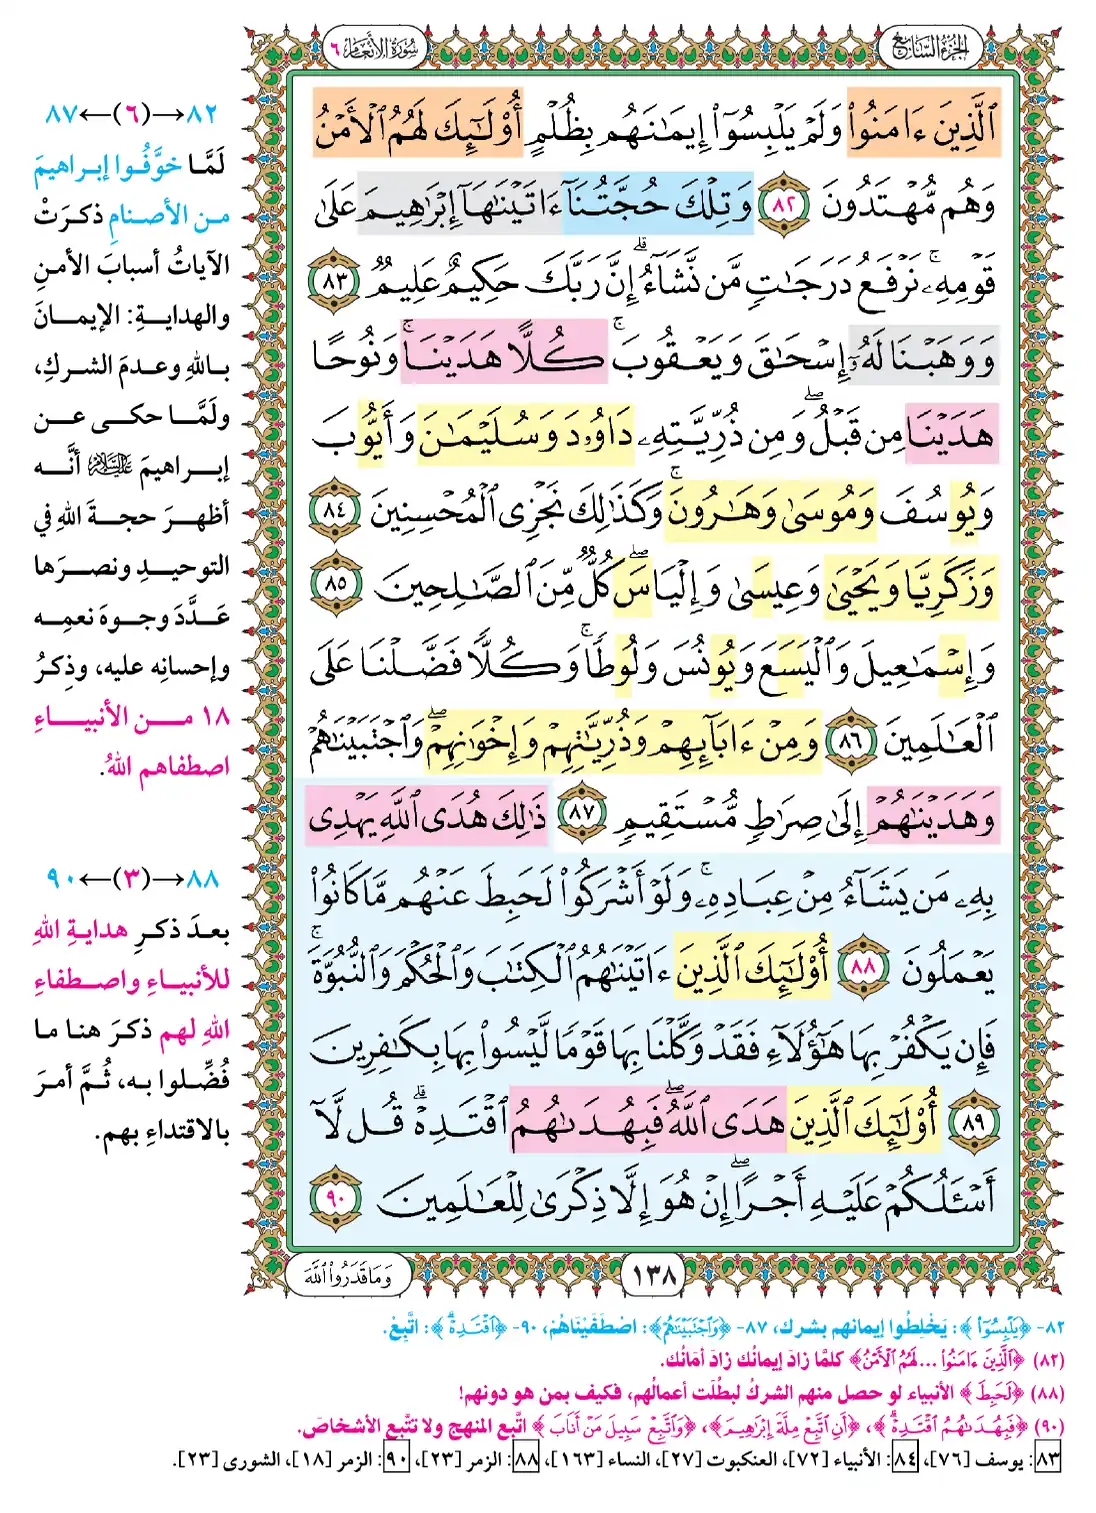 الجزء السابع
سورة الأنعام ٦
ٱلَّذِينَ ءَامَنُوا۟ وَلَمْ يَلْبِسُوٓا۟ إِيمَـٰنَهُم بِظُلْمٍ أُو۟لَـٰٓئِكَ لَهُمُ ٱلْأَمْنُ
وَهُم مُّهْتَدُونَ ٨٢ وَتِلْكَ حُجَّتُنَآ ءَاتَيْنَـٰهَآ إِبْرَٰهِيمَ عَلَىٰ
قَوْمِهِۦ ۚ نَرْفَعُ دَرَجَـٰتٍ مَّن نَّشَآءُ ۗ إِنَّ رَبَّكَ حَكِيمٌ عَلِيمٌ ٨٣
وَوَهَبْنَا لَهُۥٓ إِسْحَـٰقَ وَيَعْقُوبَ ۚ كُلًّا هَدَيْنَا ۚ وَنُوحًا
هَدَيْنَا مِن قَبْلُ ۖ وَمِن ذُرِّيَّتِهِۦ دَاوُۥدَ وَسُلَيْمَـٰنَ وَأَيُّوبَ
وَيُوسُفَ وَمُوسَىٰ وَهَـٰرُونَ ۚ وَكَذَٰلِكَ نَجْزِى ٱلْمُحْسِنِينَ ٨٤
وَزَكَرِيَّا وَيَحْيَىٰ وَعِيسَىٰ وَإِلْيَاسَ ۖ كُلٌّ مِّنَ ٱلصَّـٰلِحِينَ ٨٥
وَإِسْمَـٰعِيلَ وَٱلْيَسَعَ وَيُونُسَ وَلُوطًا ۚ وَكُلًّا فَضَّلْنَا عَلَى
ٱلْعَـٰلَمِينَ ٨٦ وَمِنْ ءَابَآئِهِمْ وَذُرِّيَّـٰتِهِمْ وَإِخْوَٰنِهِمْ ۖ وَٱجْتَبَيْنَـٰهُمْ
وَهَدَيْنَـٰهُمْ إِلَىٰ صِرَٰطٍ مُّسْتَقِيمٍ ٨٧ ذَٰلِكَ هُدَى ٱللَّهِ يَهْدِى
بِهِۦ مَن يَشَآءُ مِنْ عِبَادِهِۦ ۚ وَلَوْ أَشْرَكُوا۟ لَحَبِطَ عَنْهُم مَّا كَانُوا۟
يَعْمَلُونَ ٨٨ أُو۟لَـٰٓئِكَ ٱلَّذِينَ ءَاتَيْنَـٰهُمُ ٱلْكِتَـٰبَ وَٱلْحُكْمَ وَٱلنُّبُوَّةَ ۚ
فَإِن يَكْفُرْ بِهَا هَـٰٓؤُلَآءِ فَقَدْ وَكَّلْنَا بِهَا قَوْمًا لَّيْسُوا۟ بِهَا بِكَـٰفِرِينَ
٨٩ أُو۟لَـٰٓئِكَ ٱلَّذِينَ هَدَى ٱللَّهُ ۖ فَبِهُدَىٰهُمُ ٱقْتَدِهْ ۗ قُل لَّآ
أَسْـَٔلُكُمْ عَلَيْهِ أَجْرًا ۖ إِنْ هُوَ إِلَّا ذِكْرَىٰ لِلْعَـٰلَمِينَ ٩٠
١٣٨
وَمَا قَدَرُوا۟ ٱللَّهَ
٨٢→(٦)←٨٧
لَمَّا خوَّفُوا إبراهيمَ
من الأصنامِ ذكرَتْ
الآياتُ أسبابَ الأمنِ
والهدايةِ: الإيمانَ
باللهِ وعدمَ الشركِ،
ولَمَّا حكى عن
إبراهيمَ عليه السلام أنَّه
أظهرَ حجةَ اللهِ في
التوحيدِ ونصرَها
عَدَّدَ وجوهَ نعمِه
وإحسانِه عليه، وذِكرُ
١٨ من الأنبياءِ
اصطفاهم اللهُ.
٨٨→(٣)←٩٠
بعدَ ذكرِ هدايةِ اللهِ
للأنبياءِ واصطفاءِ
اللهِ لهم ذكرَ هنا ما
فُضِّلوا به، ثُمَّ أمرَ
بالاقتداءِ بهم.
٨٢- ﴿يَلْبِسُوٓا۟﴾: يَخْلِطُوا إيمانهم بشرك، ٨٧- ﴿وَٱجْتَبَيْنَـٰهُمْ﴾: اصْطَفَيْنَاهُمْ، ٩٠- ﴿ٱقْتَدِهْ ۗ﴾: اتَّبِعْ.
(٨٢) ﴿ٱلَّذِينَ ءَامَنُوا۟ ... لَهُمُ ٱلْأَمْنُ﴾ كلمَّا زادَ إيمانُك زادَ أمَانُك.
(٨٨) ﴿لَحَبِطَ﴾ الأنبياء لو حصل منهم الشركُ لبطُلَت أعمالُهم، فكيف بمن هو دونهم!
(٩٠) ﴿فَبِهُدَىٰهُمُ ٱقْتَدِهْ ۗ﴾، ﴿أَنِ ٱتَّبِعْ مِلَّةَ إِبْرَٰهِيمَ﴾، ﴿وَٱتَّبِعْ سَبِيلَ مَنْ أَنَابَ﴾ اتَّبع المنهج ولا تتَّبع الأشخاصَ.
٨٣: يوسف [٧٦]، ٨٤: الأنبياء [٧٢]، العنكبوت [٢٧]، النساء [١٦٣]، ٨٨: الزمر [٢٣]، ٩٠: الزمر [١٨]، الشورى [٢٣].